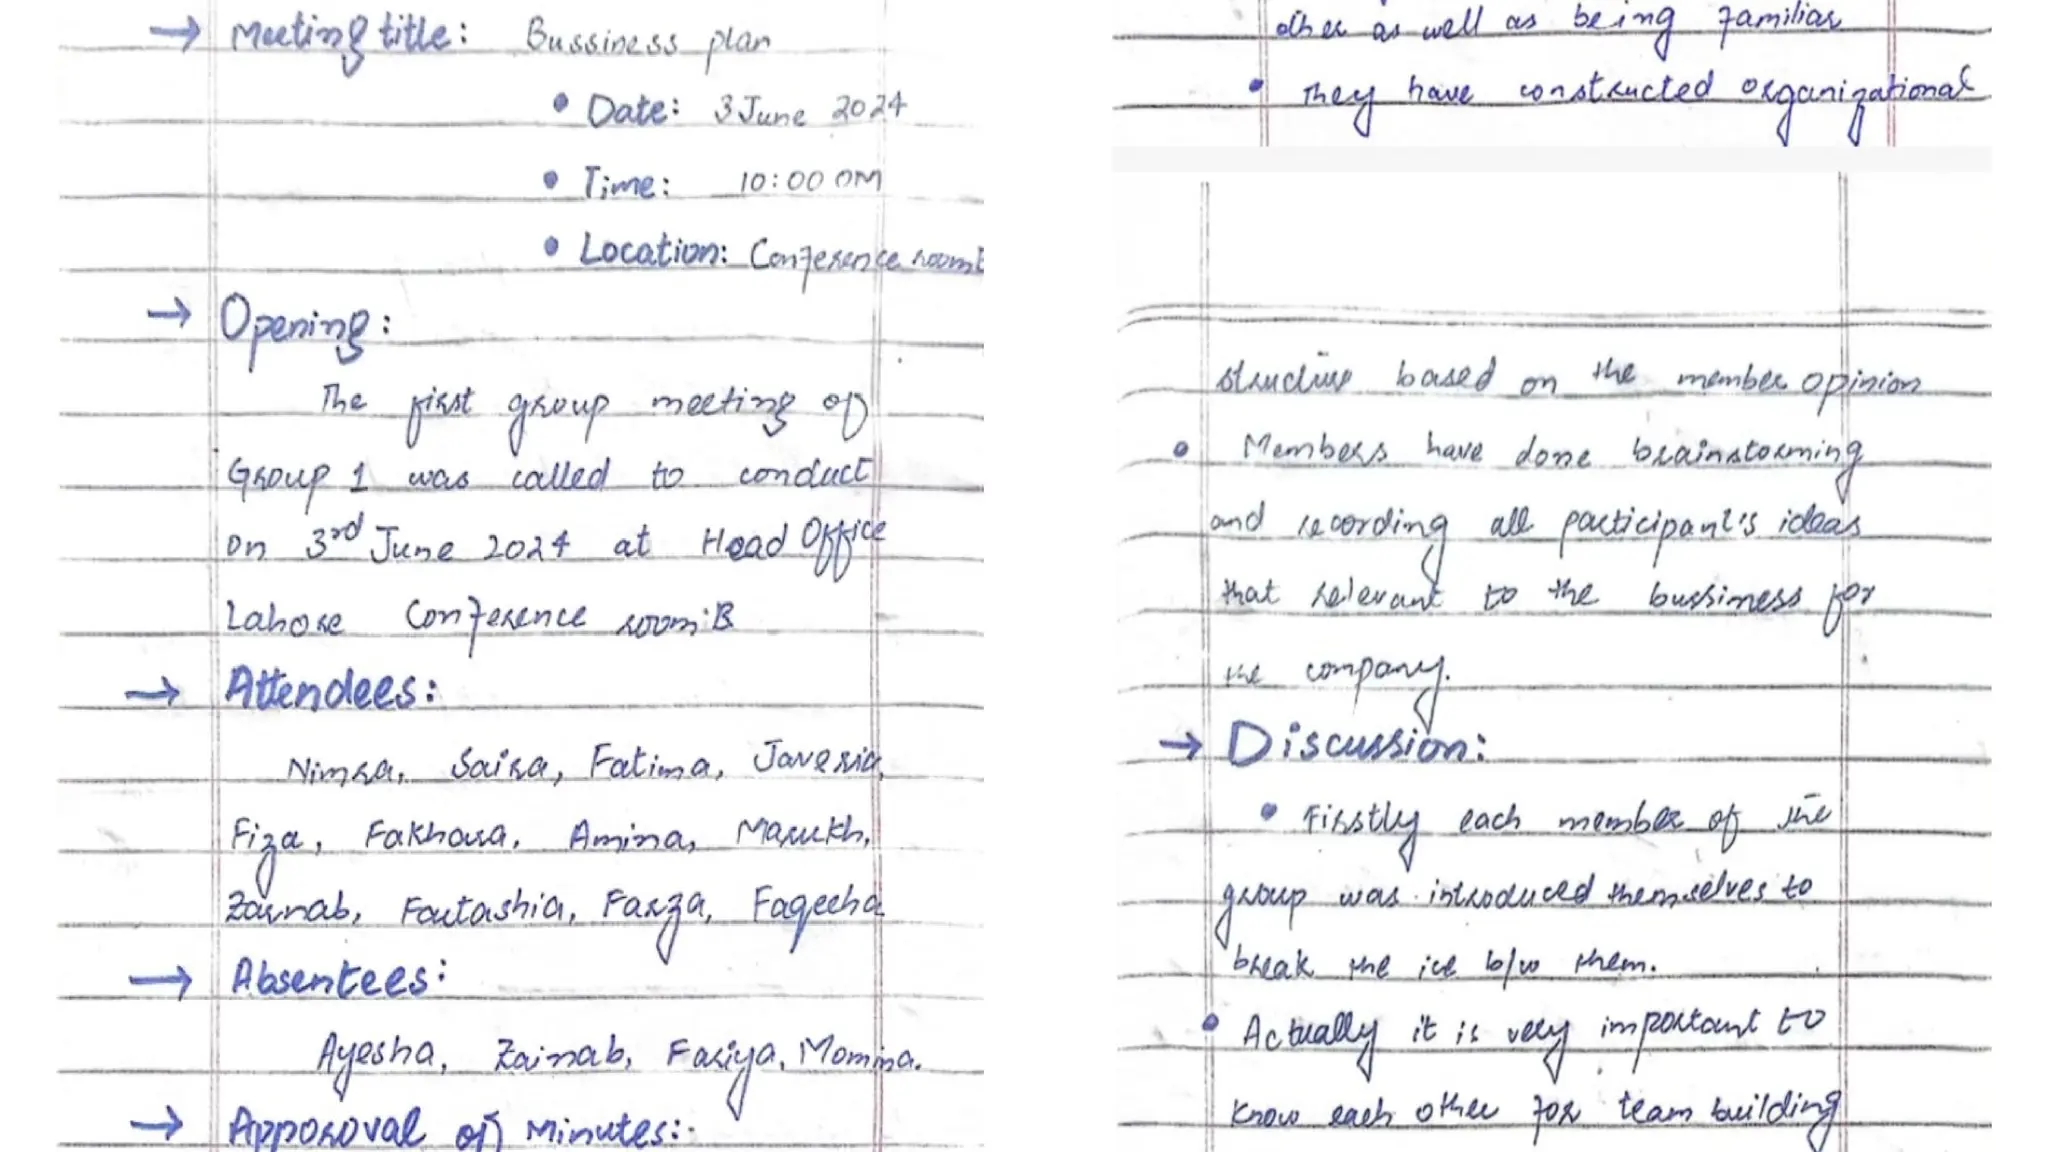 → Meeting title: Bussiness plan
• Date: 3 June 2024
• Time: 10:00 am
• Location: Conference room
→ Opening:
The first group meeting of
Group 1 was called to conduct
on 3rd June 2024 at Head Office
Lahore Conference room:B
→ Attendees:
Nimra, Saira, Fatima, Javeria,
Fiza, Fakhara, Amina, Marukh,
Zainab, Fartashia, Farza, Faqeeha
→ Absentees:
Ayesha, Zainab, Fariya, Momina.
→ Apporoval of Minutes:-
other as well as being familiar
• They have constructed organizational
structure based on the member opinion
• Members have done brainstorming
and recording all participant's ideas
that relevant to the bussiness for
the company.
→ Discussion:
• Firstly each member of the
group was introduced themselves to
break the ice b/w them.
• Actually it is very important to
know each other for team building